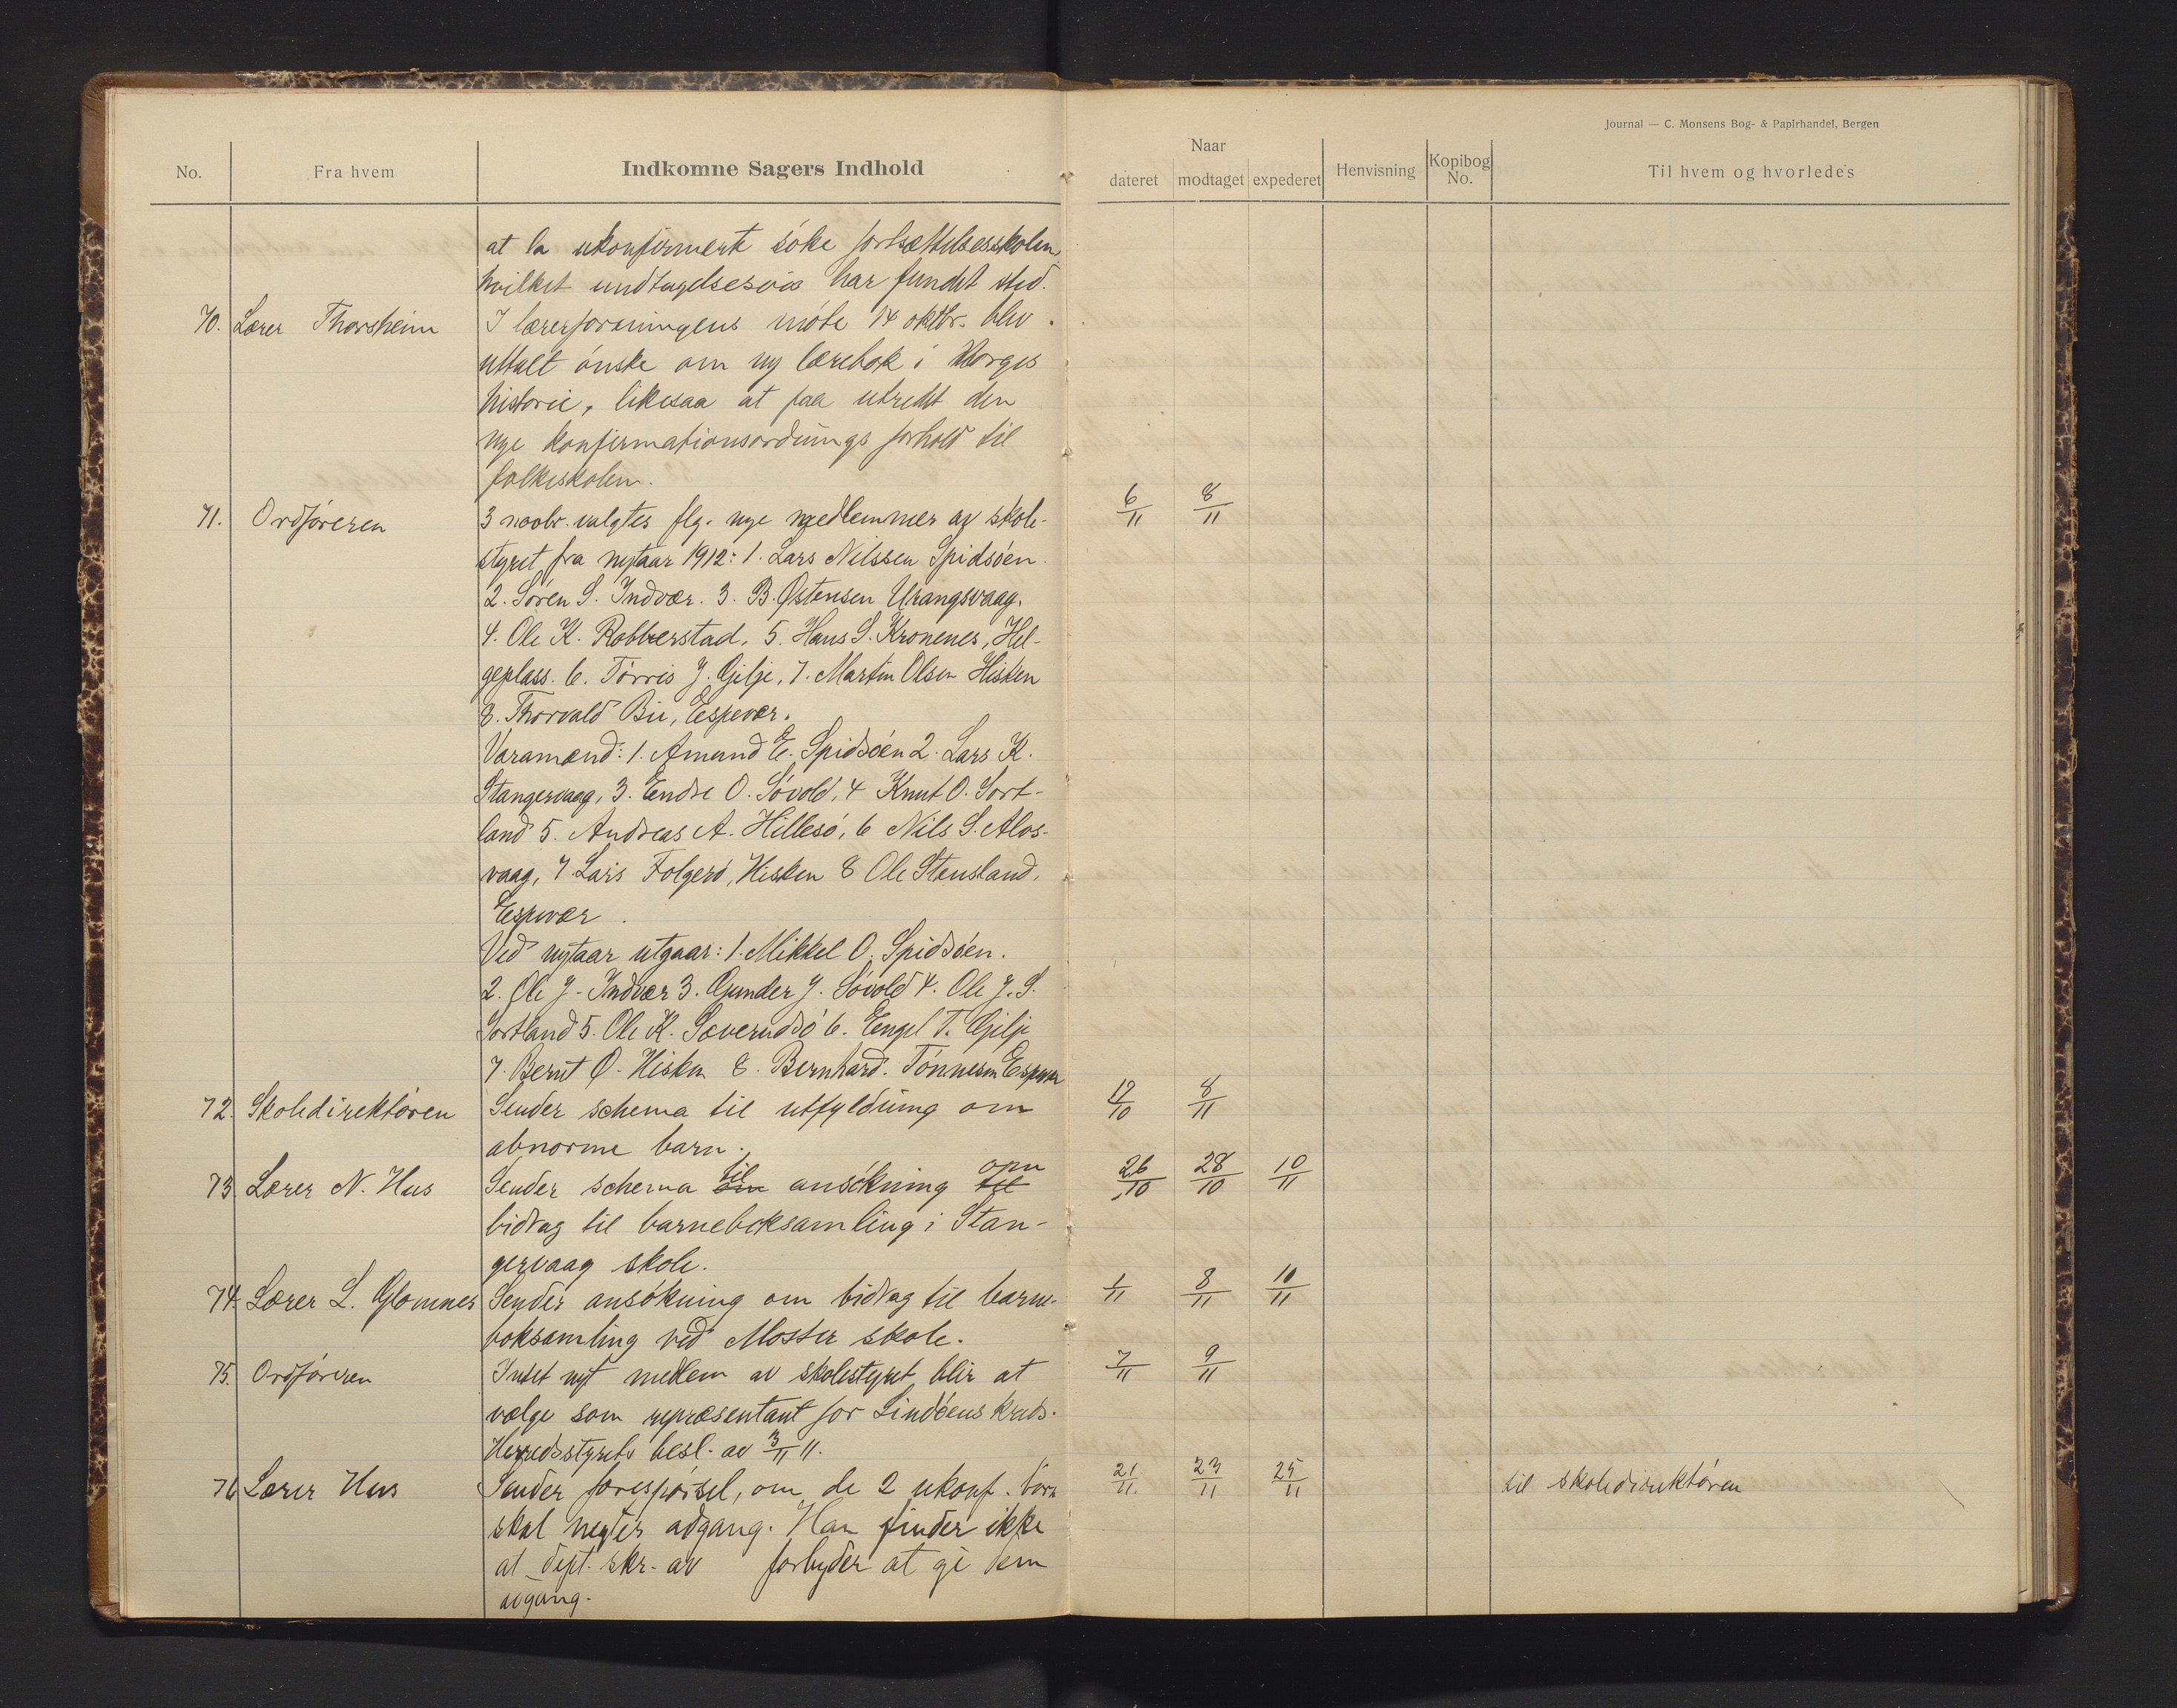 Journal — C. Monsens Bog- & Papirhandel, Bergen
No. Fra hvem Indkomne Sagers Indhold Naar dateret modtaget expederet Henvisning Kopibog No. Til hvem og hvorledes
at la ukonfirmerte söke fortsættelsesskolen,
hvilket undtagelsesvis har fundet sted.
70. Lærer Thorsheim I lærerforeningens möte 14 oktbr. blev
uttalt önske om ny lærebok i Norges
historie, likesaa at faa utredet den
nye konfirmationsordnings forhold til
folkeskolen.
71. Ordföreren 3 novbr. valgtes flg. nye medlemmer av skole- 6/11 8/11
styret fra nytaar 1912: 1. Lars Nilssen Spidsöen
2. Sören S. Indvær. 3. B. Østensen Urangsvaag.
4. Ole K. Robberstad, 5. Hans S. Kronenes, Hel-
geplass. 6. Törris J. Gilje, 7. Martin Olsen Hisken
8. Thorvald Bie, Espevær.
Varamænd: 1. Amund E. Spidsöen 2. Lars K.
Stangervaag, 3. Endre O. Sövold, 4 Knut O. Sort-
land 5. Andreas A. Hillesö, 6 Nils S. Alvs-
vaag, 7 Lars Folgerö, Hisken 8 Ole Stensland,
Espevær.
Ved nytaar utgaar: 1. Mikkel O. Spidsöen.
2. Ole J. Indvær 3. Gunder J. Sövold 4. Ole J. S.
Sortland 5. Ole K. Sæverudsö 6. Engel T. Gilje
7. Bernt O. Hisken 8. Bernhard Tönnesen Espevær
72. Skoledirektören Sender schema til utfyldning om 12/10 8/11
abnorme barn.
73. Lærer N. Hus Sender schema om til ansökning til om 26/10 28/10 10/11
bidrag til barneboksamling i Stan-
gervaag skole.
74. Lærer L. Glomnes Sender ansökning om bidrag til barne- 1/11 8/11 10/11
boksamling ved Moster skole.
75. Ordföreren Intet nyt medlem av skolestyret blir at 7/11 9/11
vælge som repræsentant for Lindöens kreds.
Herredsstyrets besl. av 3/11 11.
76 Lærer Hus Sender forespörsel, om de 2 ukonf. börn 21/11. 23/11 25/11 til skoledirektören
skal negtes adgang. Han finder ikke
at dept. skr. av forbyder at gi dem
adgang.